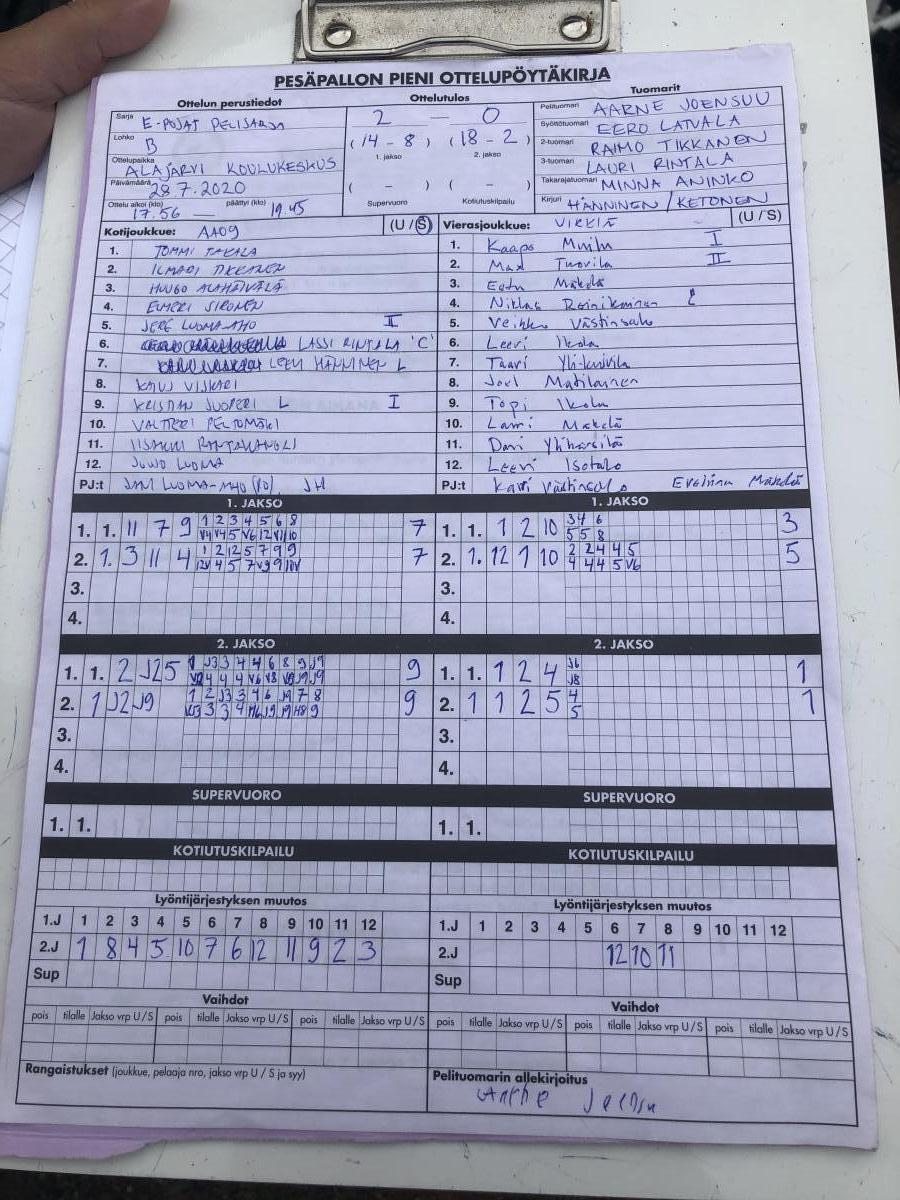 PESÄPALLON PIENI OTTELUPÖYTÄKIRJA
Ottelun perustiedot
Sarja E-POJAT PELISARJA
Lohko B
Ottelupaikka ALAJÄRVI KOULUKESKUS
Päivämäärä 28.7.2020
Ottelu alkoi (klo) 17.56 — päättyi (klo) 19.45
Ottelutulos
2 — 0
(14 - 8) (18 - 2)
1. jakso 2. jakso
( - ) ( - )
Supervuoro Kotiutuskilpailu
Tuomarit
Pelituomari AARNE JOENSUU
Syöttötuomari EERO LATVALA
2-tuomari RAIMO TIKKANEN
3-tuomari LAURI RINTALA
Takarajatuomari MINNA ANINKO
Kirjuri HÄNNINEN / KETONEN
Kotijoukkue: AA09 (U / S)
1. TOMMI TAKALA
2. ILMARI TIKKANEN
3. HUUGO ALAHÄIVÄLÄ
4. ELMERI SIRONEN
5. JERE LUOMA-AHO II
6. LASSI RINTALA 'C'
7. LEEVI HÄNNINEN L
8. VISKARI
9. KRISTIAN JUOPERI L I
10. VALTTERI PELTOMÄKI
11. IISAKKI RANTAKANGAS
12. JUUSO LUOMA
PJ:t JANI LUOMA-AHO JH
Vierasjoukkue: VIRKIÄ (U / S)
1. Kaapo I
2. Max Tuovila II
3. Eetu Mäkelä
4. Niklas Reinikainen
5. Veikko Västinsalo
6. Leevi Ikola
7. Taavi
8. Joel Matilainen
9. Topi Ikola
10. Lauri Mäkelä
11. Dani Ylihärsilä
12. Leevi Isotalo
PJ:t Västinsalo Eveliina Mäkelä
1. JAKSO
1. 1. 11 7 9
1 2 3 4 5 6 8
7
2. 1. 3 11 4
1 2 12 5 7 9 9
7
3.
4.
1. JAKSO
1. 1. 1 2 10
3 4 6
5 5 8
3
2. 1. 12 1 10
2 2 4 4 5
4 4 4 5 V6
5
3.
4.
2. JAKSO
1. 1. 2 J2 5
1 J3 3 4 4 6 8 9 J9
9
2. 1 J2 J9
1 2 J3 3 4 6 J9 7 8
9
3.
4.
2. JAKSO
1. 1. 1 2 4
J6
J8
1
2. 1 1 2 5
4
5
1
3.
4.
SUPERVUORO
1. 1.
SUPERVUORO
1. 1.
KOTIUTUSKILPAILU
KOTIUTUSKILPAILU
Lyöntijärjestyksen muutos
1.J 1 2 3 4 5 6 7 8 9 10 11 12
2.J 1 8 4 5 10 7 6 12 11 9 2 3
Sup
Lyöntijärjestyksen muutos
1.J 1 2 3 4 5 6 7 8 9 10 11 12
2.J 12 10 11
Sup
Vaihdot
pois tilalle Jakso vrp U / S pois tilalle Jakso vrp U / S pois tilalle Jakso vrp U / S
Vaihdot
pois tilalle Jakso vrp U / S pois tilalle Jakso vrp U / S pois tilalle Jakso vrp U / S
Rangaistukset (joukkue, pelaaja nro, jakso vrp U / S ja syy)
Pelituomarin allekirjoitus